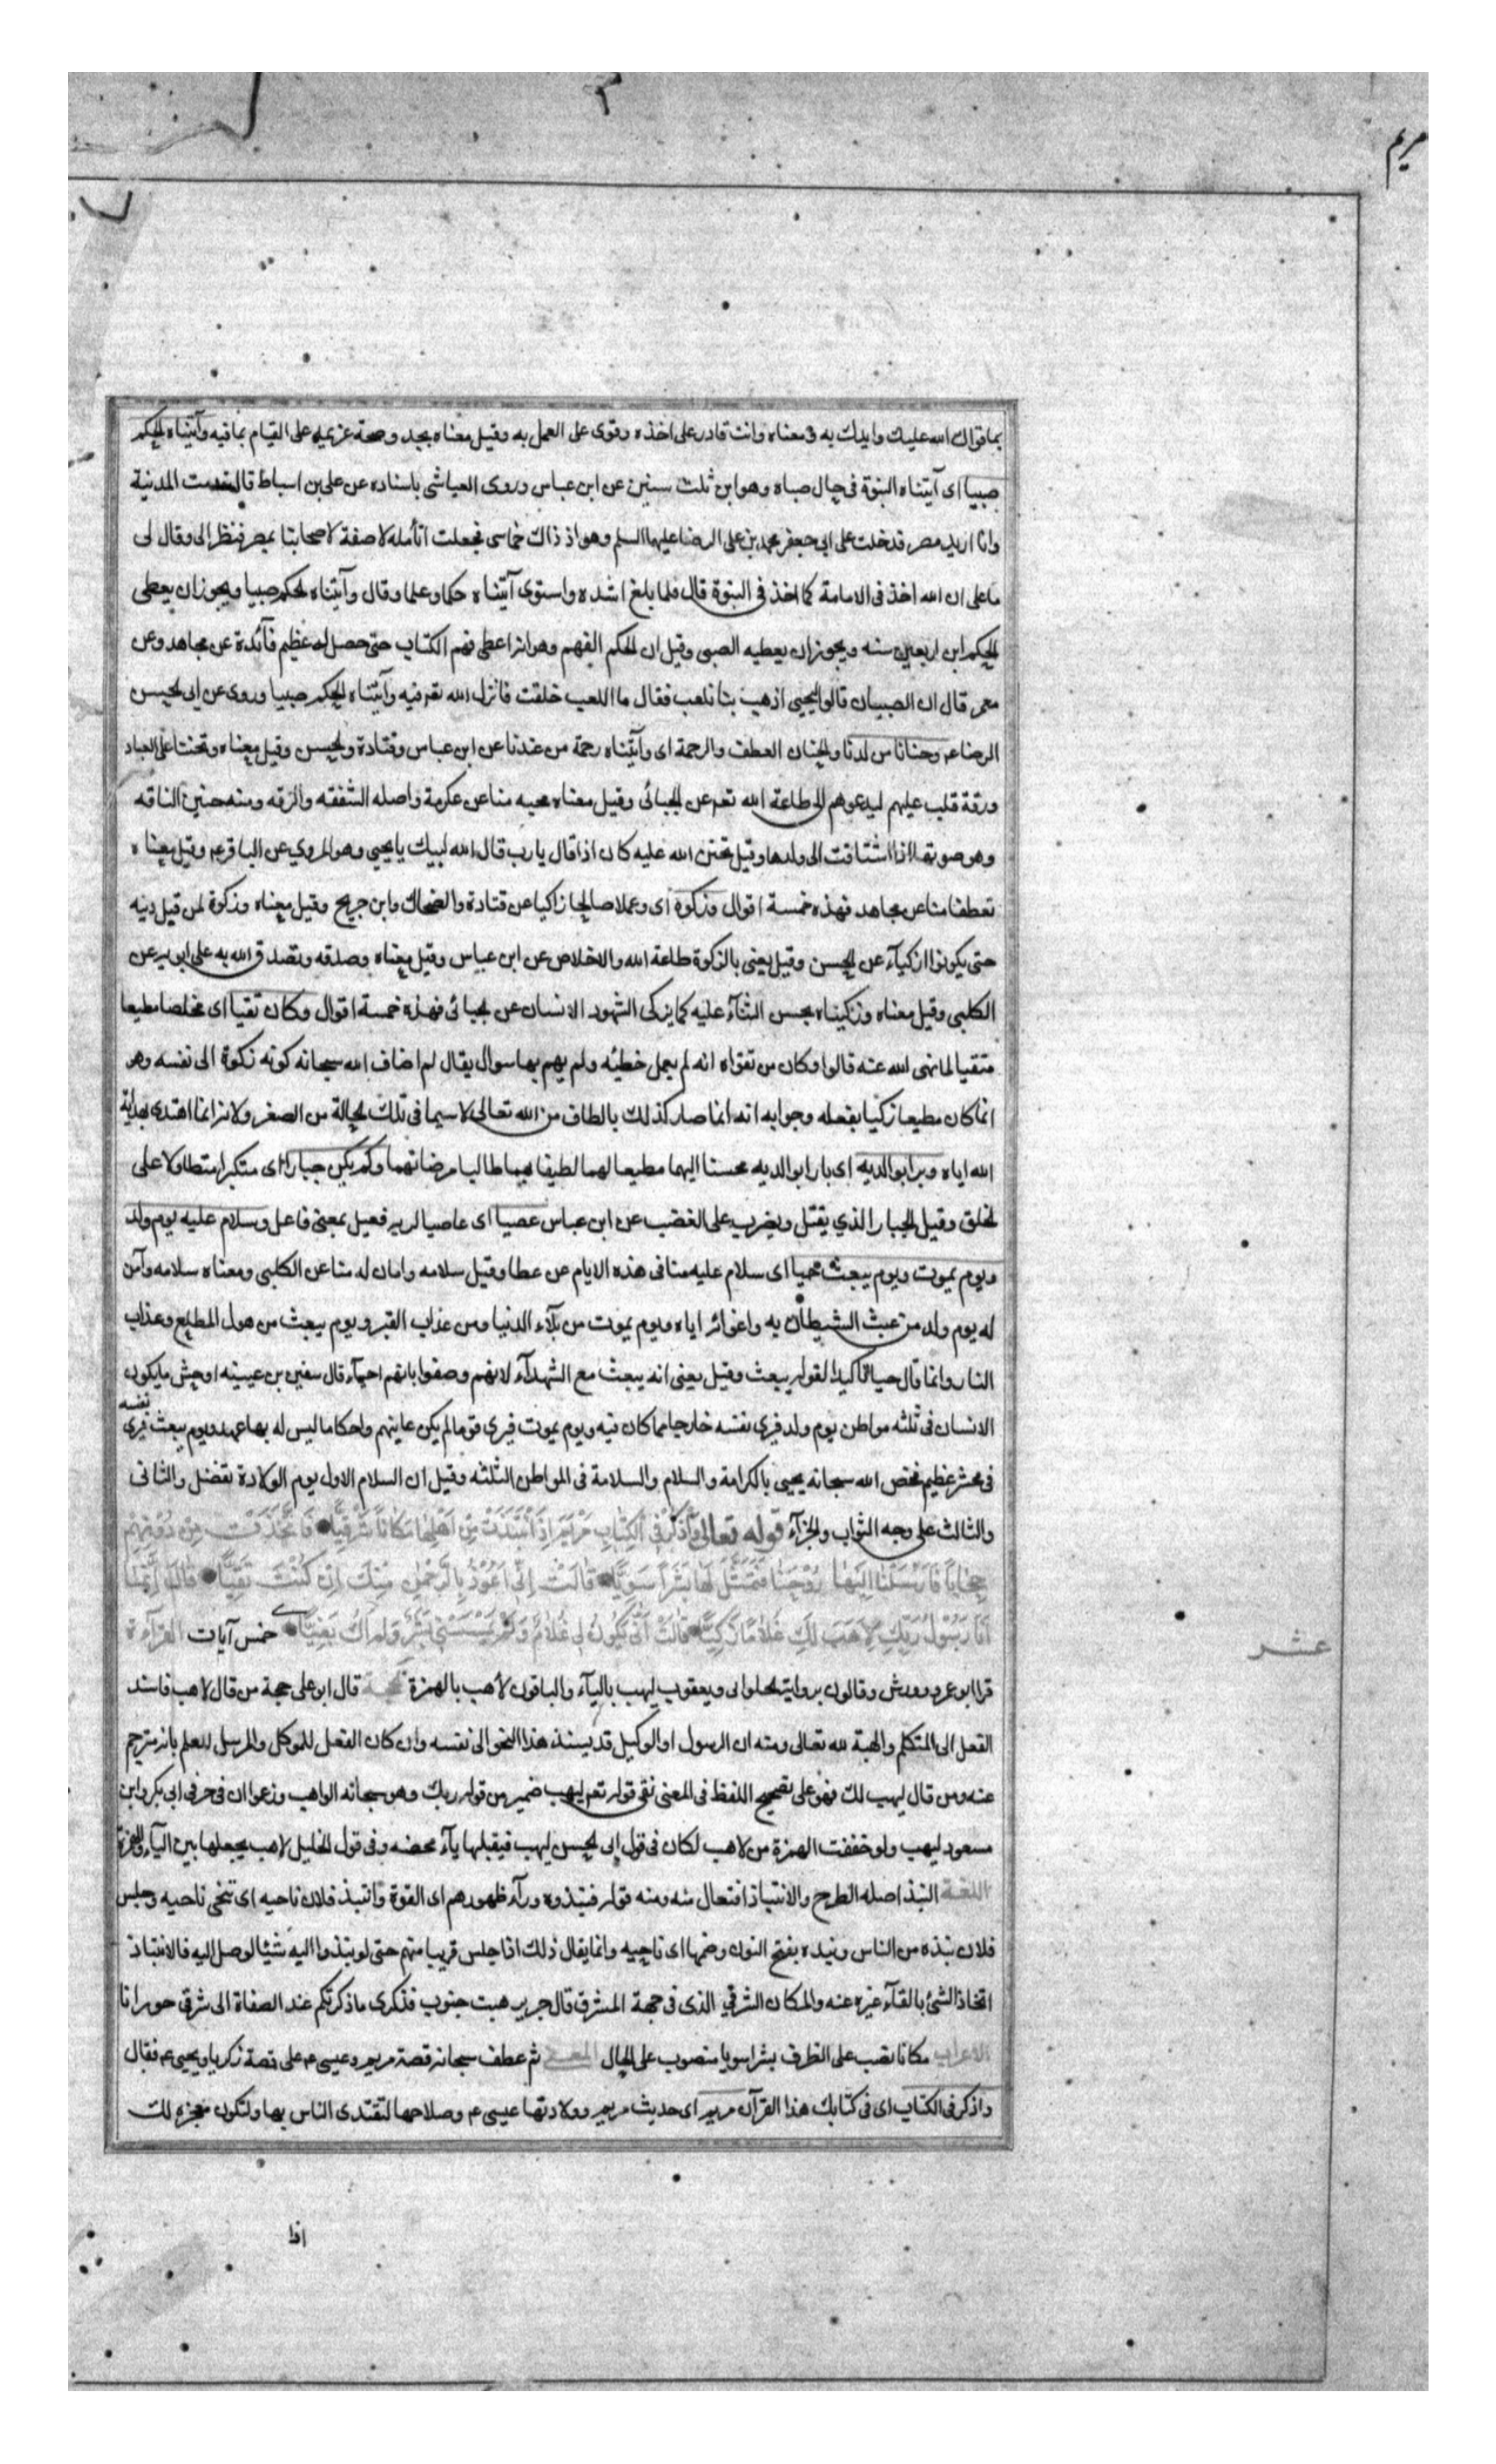 مريم
بما قواك الله عليك وايدك به ومعناه وانت قادر على اخذه وقوى على العمل به وقيل معناه بجد وصحة عزيمه على القيام بما فيه وآتيناه الحكم
صبيا اى آتيناه النبوة فى حال صباه وهو ابن ثلث سنين عن ابن عباس وروى العياشى باسناده عن على بن اسباط قال قدمت المدنية
وانا اريد مصر فدخلت على ابى جعفر محمد بن على الرضا عليهما السلم وهو اذ ذاك خماسى فجعلت اتأمله لاصفة لاصحابنا بمصر فنظر الى وقال لى
يا على ان الله اخذ فى الامامة كما اخذ فى النبوة قال فلما بلغ اشده واستوى آتيناه حكما وعلما وقال وآتيناه الحكم صبيا ويجوز ان يعطى
الحكم ابن اربعين سنه ويجوز ان يعطيه الصبى وقيل ان الحكم الفهم وهو انه اعطى فهم الكتاب حتى حصل له عظيم فآئدة عن مجاهد وعن
معمر قال ان الصبيان قالوا ليحيى اذهب بنا نلعب فقال ما اللعب خلقت فانزل الله تعم فيه وآتيناه الحكم صبيا وروى عن ابى الحسن
الرضا عم وحنانا من لدنا والحنان العطف والرحمة اى وآتيناه رحمة من عندنا عن ابن عباس وقتادة والحسن وقيل معناه وتحننا على العباد
ورقة قلب عليهم ليدعوهم الى طاعة الله تعم عن الجبائى وقيل معناه محبه منا عن عكرمة واصله الشفقه والرقه ومنه حنين الناقه
وهو صوتها اذا اشتاقت الى ولدها وقيل تحنن الله عليه كان اذا قال يا رب قال الله لبيك يا يحيى وهو المروي عن الباقر عم وقيل معناه
تعطفا منا عن مجاهد فهذه خمسة اقوال وزكوة اى وعملا صالحا زاكيا عن قتادة والضحاك وابن جريح وقيل معناه وزكوة لمن قبل دينه
حتى يكونوا ازكيآء عن الحسن وقيل يعنى بالزكوة طاعة الله والاخلاص عن ابن عباس وقيل معناه وصدقه وتصدق الله به على ابويه عن
الكلبى وقيل معناه وزكيناه بحسن الثنآء عليه كما يزكى الشهود الانسان عن الجبائى فهذه خمسة اقوال وكان تقيا اى مخلصا مطيعا
متقيا لما نهى الله عنه قالوا وكان من تقواه انه لم يعمل خطيئه ولم يهم بها سوال يقال لم اضاف الله سبحانه كونه زكوة الى نفسه وهو
انما كان مطيعا زكيا بفعله وجوابه انه انما صار كذلك بالطاف من الله تعالى لا سيما فى تلك الحالة من الصغر ولانه انما اهتدى بهداية
الله اياه وبرا بوالديه اى بارا بوالديه محسنا اليهما مطيعا لهما لطيفا بهما طالبا مرضاتهما ولم يكن جبارا اى متكبرا متطاولا على
الخلق وقيل الجبار الذي يقتل ويضرب على الغضب عن ابن عباس عصيا اى عاصيا لربه فعيل بمعنى فاعل وسلام عليه يوم ولد
ويوم يموت ويوم يبعث حيا اى سلام عليه منا فى هذه الايام عن عطا وقيل سلامه وامان له منا عن الكلبى ومعناه سلامه وآمن
له يوم ولد من عبث الشيطان به واغوائه اياه ويوم يموت من بلآء الدنيا ومن عذاب القبر ويوم يبعث من هول المطلع وعذاب
النار وانما قال حيا تاكيدا لقوله يبعث وقيل يعنى انه يبعث مع الشهدآء لانهم وصفوا بانهم احيآء قال سفين بن عيينه اوحش ما يكون
الانسان فى ثلثه مواطن يوم ولد فيرى نفسه خارجا مما كان فيه ويوم يموت فيرى قوما لم يكن عاينهم واحكاما ليس له بها عهد ويوم يبعث فيرى نفسه
فى محشر عظيم فخص الله سبحانه يحيى بالكرامة والسلام والسلامة فى المواطن الثلثه وقيل ان السلام الاول يوم الولادة تفضل والثانى
والثالث على وجه الثواب والجزآء قوله تعالى وَاذْكُرْ فِى الْكِتَابِ مَرْيَمَ اِذِ انْتَبَذَتْ مِنْ اَهْلِهَا مَكَانًا شَرْقِيًّا فَاتَّخَذَتْ مِنْ دُونِهِمْ
حِجَابًا فَاَرْسَلْنَا اِلَيْهَا رُوحَنَا فَتَمَثَّلَ لَهَا بَشَرًا سَوِيًّا قَالَتْ اِنِّى اَعُوْذُ بِالرَّحْمٰنِ مِنْكَ اِنْ كُنْتَ تَقِيًّا قَالَ اِنَّمَا
اَنَا رَسُوْلُ رَبِّكِ لِاَهَبَ لَكِ غُلَامًا زَكِيًّا قَالَتْ اَنّٰى يَكُوْنُ لِى غُلَامٌ وَلَمْ يَمْسَسْنِى بَشَرٌ وَلَمْ اَكُ بَغِيًّا خمس آيات القرآءة
عشر
قرا ابو عمرو وورش وقالون برواية الحلوانى ويعقوب ليهب باليآء والباقون لاهب بالهمزة الحجة قال ابو على حجة من قال لاهب فاسند
الفعل الى المتكلم والهبة لله تعالى ومنه ان الرسول او الوكيل قد يسند هذا النحو الى نفسه وان كان الفعل للموكل والمرسل للعلم بانه مترجم
عنه ومن قال ليهب لك فهو على تصحيح اللفظ فى المعنى نفى قوله تعم ليهب ضمير من قوله ربك وهو سبحانه الواهب وزعموا ان فى حرف ابى بكر وابن
مسعود ليهب ولو خففت الهمزة من لاهب لكان فى قول ابى الحسن ليهب فيقبلها يآء محضه وفى قول الخليل لاهب يجعلها بين اليآء والهمزة
اللغة النبذ اصله الطرح والانتباذ افتعال منه ومنه قوله فنبذوه ورآء ظهورهم اى القوة وانتبذ فلان ناحيه اى تنحى ناحيه وجلس
فلان نبذه من الناس ونبذه بفتح النون وضمها اى ناحيه وانما يقال ذلك اذا جلس قريبا منهم حتى لو نبذوا اليه شيئا لوصل اليه فالانتباذ
اتخاذ الشئ بالقآء غيره عنه والمكان الشرقي الذى فى جهة المشرق قال جرير هبت جنوب فذكرى ما ذكرتكم عند الصفاة الى شرقى حورانا
الاعراب مكانا نصب على الظرف بشرا سويا منصوب على الحال المعنى ثم عطف سبحانه قصة مريم وعيسى عم على قصة زكريا ويحيى عم فقال
واذكر فى الكتاب اى فى كتابك هذا القرآن مريم اى حديث مريم وولادتها عيسى عم وصلاحها لتقتدى الناس بها ولتكون معجزه لك
اذا